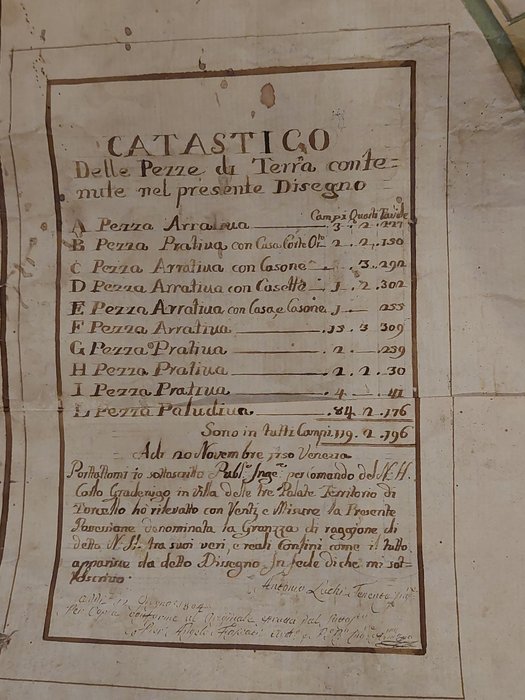 CATASTICO
Delle Pezze di Terra conte=
nute nel presente Disegno
Campi Quarti Tavole
A Pezza Arratiua 3. 2. 227
B Pezza Pratiua con Casa Corte Orto 2. 2. 130
C Pezza Arratiua con Casone 3. 292
D Pezza Arratiua con Casetta 1. 2. 302
E Pezza Arratiua con Casa, e Casone 1 255
F Pezza Arratiua 15. 3 309
G Pezza Pratiua 2 239
H Pezza Pratiua 2. 2. 30
I Pezza Pratiua 4 41
L Pezza Paludiua 84. 2. 176
Sono in tutti Campi 119. 2. 196
Adi 20 Novembre Venezia
Portatomi io sottoscritto Publ.º Inge.r per comando del N.H.
Gradenigo in Villa delle tre Palate Territorio di
Torcello hò rilevato con Ventj, e Misure la Presente
denominata la di raggione di
detto N.H. tra suoi veri, e reali Confini come il tutto
apparisce da detto Disegno. In fede di che mi sot=
toscrivo
Antonio
1804
Per Copia conforme al Originale